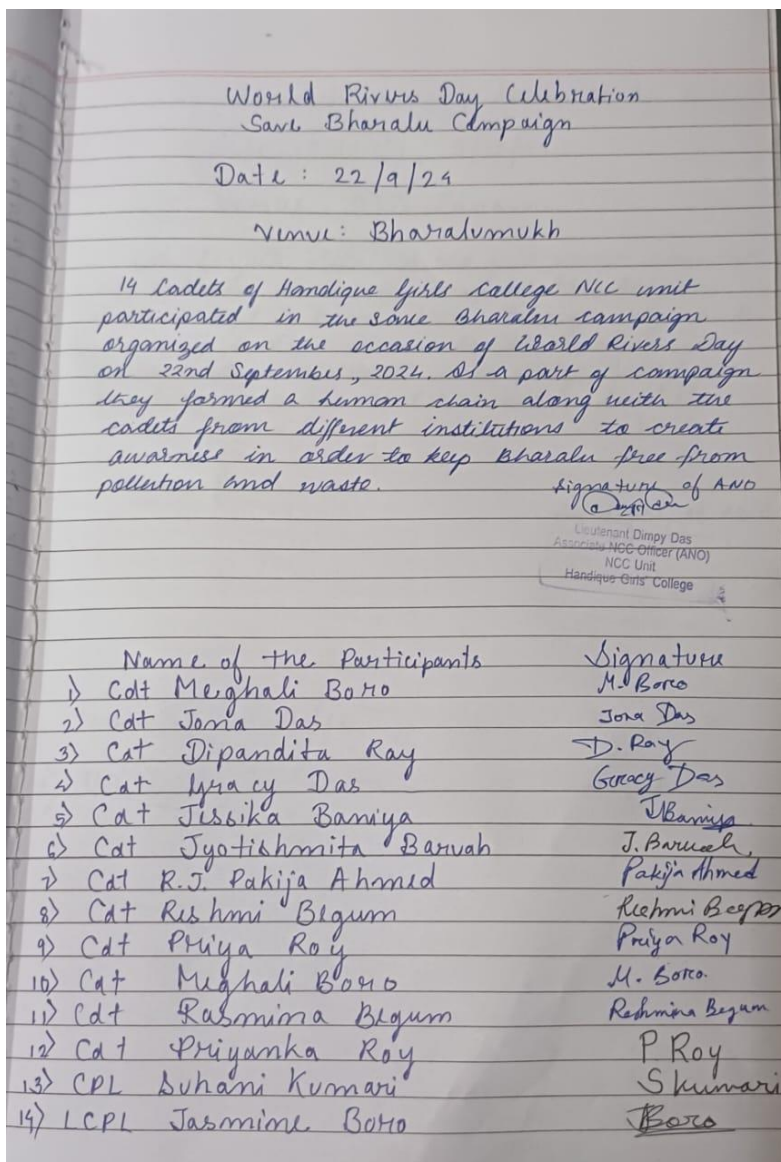 World Rivers Day Celebration
Save Bharalu Campaign
Date : 22/9/24
Venue: Bharalumukh
14 Cadets of Handique Girls College NCC unit
participated in the save Bharalu campaign
organized on the occasion of World Rivers Day
on 22nd September, 2024. As a part of campaign
they formed a human chain along with the
cadets from different institutions to create
awarnise in order to keep Bharalu free from
pollution and waste.
Signature of ANO
Lieutenant Dimpy Das
Associate NCC Officer (ANO)
NCC Unit
Handique Girls' College
Name of the Participants Signature
1) Cdt Meghali Boro M. Boro
2) Cdt Jona Das Jona Das
3) Cdt Dipandita Ray D. Ray
4) Cdt Gracy Das Gracy Das
5) Cdt Jessika Baniya J Baniya
6) Cdt Jyotishmita Baruah J. Baruah
7) Cdt R.J. Pakija Ahmed Pakija Ahmed
8) Cdt Reshmi Begum Reshmi
9) Cdt Priya Roy Priya Roy
10) Cdt Meghali Boro M. Boro.
11) Cdt Rasmina Begum Reshmina Begum
12) Cdt Priyanka Roy P Roy
13) CPL Suhani Kumari S kumari
14) LCPL Jasmine Boro JBoro